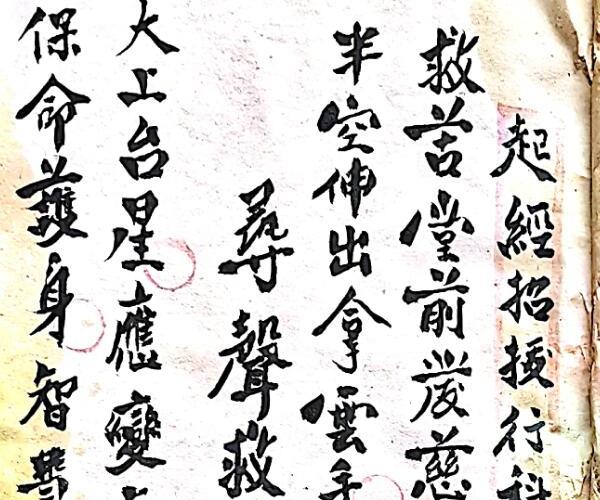 起經招援行科
救苦堂前發慈
半空伸出拿雲手
尋聲救
大上台星應變
保命護身智慧